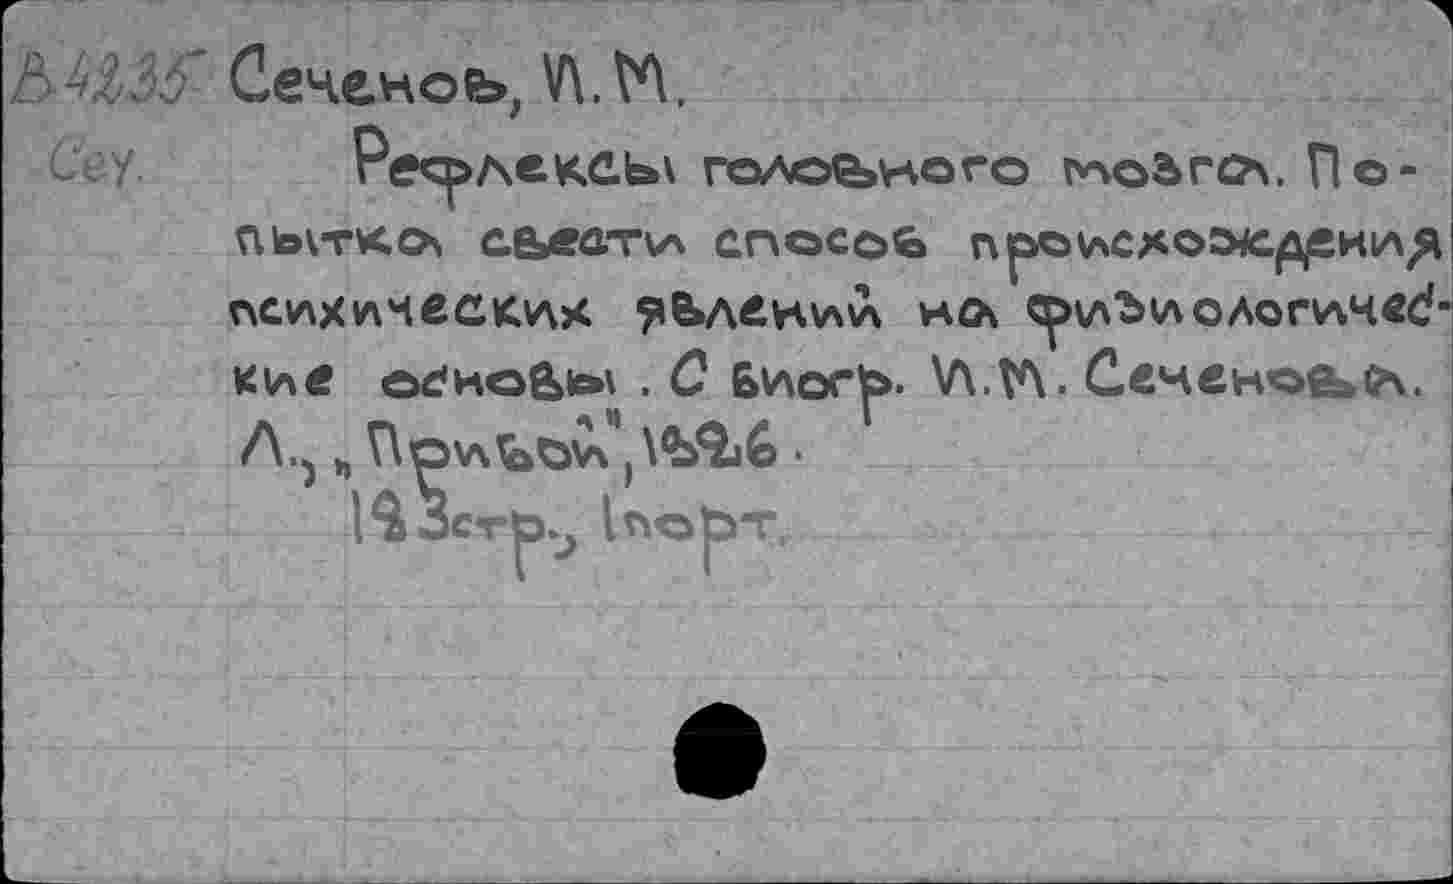 В4235 Сеченов, И.М.
Сеч. Рефлексы головного мозга. По-
пытка свести способ происхождения
психических явлений на физиологичес-
кие основы. С биогр. И.М. Сеченова.
Л., „Прибой", 1926.
193стр., 1порт.